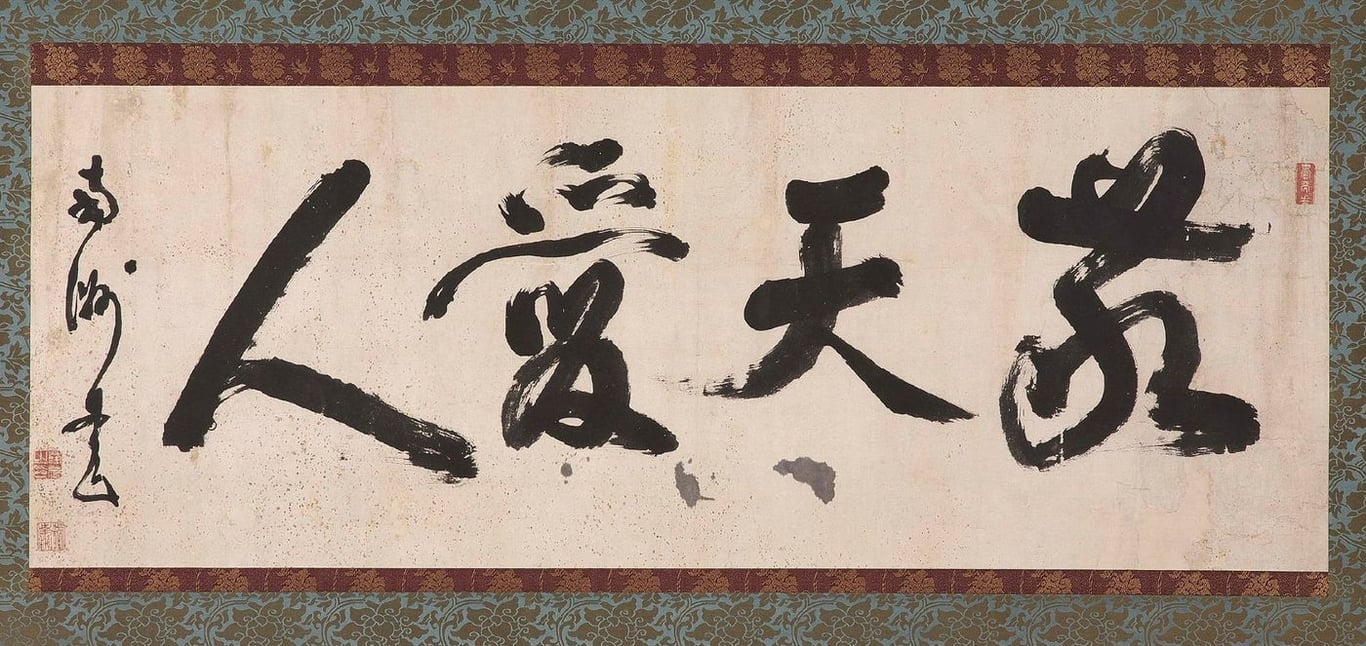 敬天愛人
南洲書